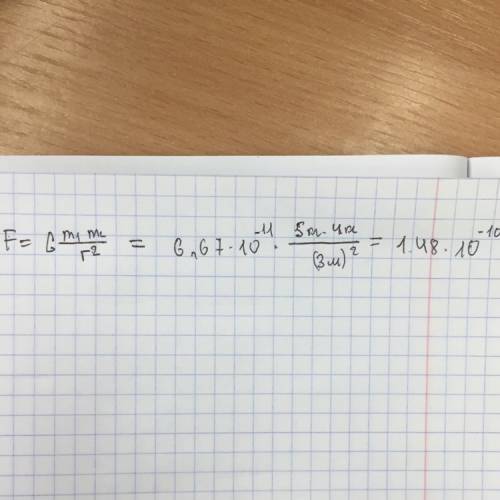 F = G m₁ m₂ / r² = 6,67 · 10⁻¹¹ · 5m · 4m / (3м)² = 1.48 · 10⁻¹⁰